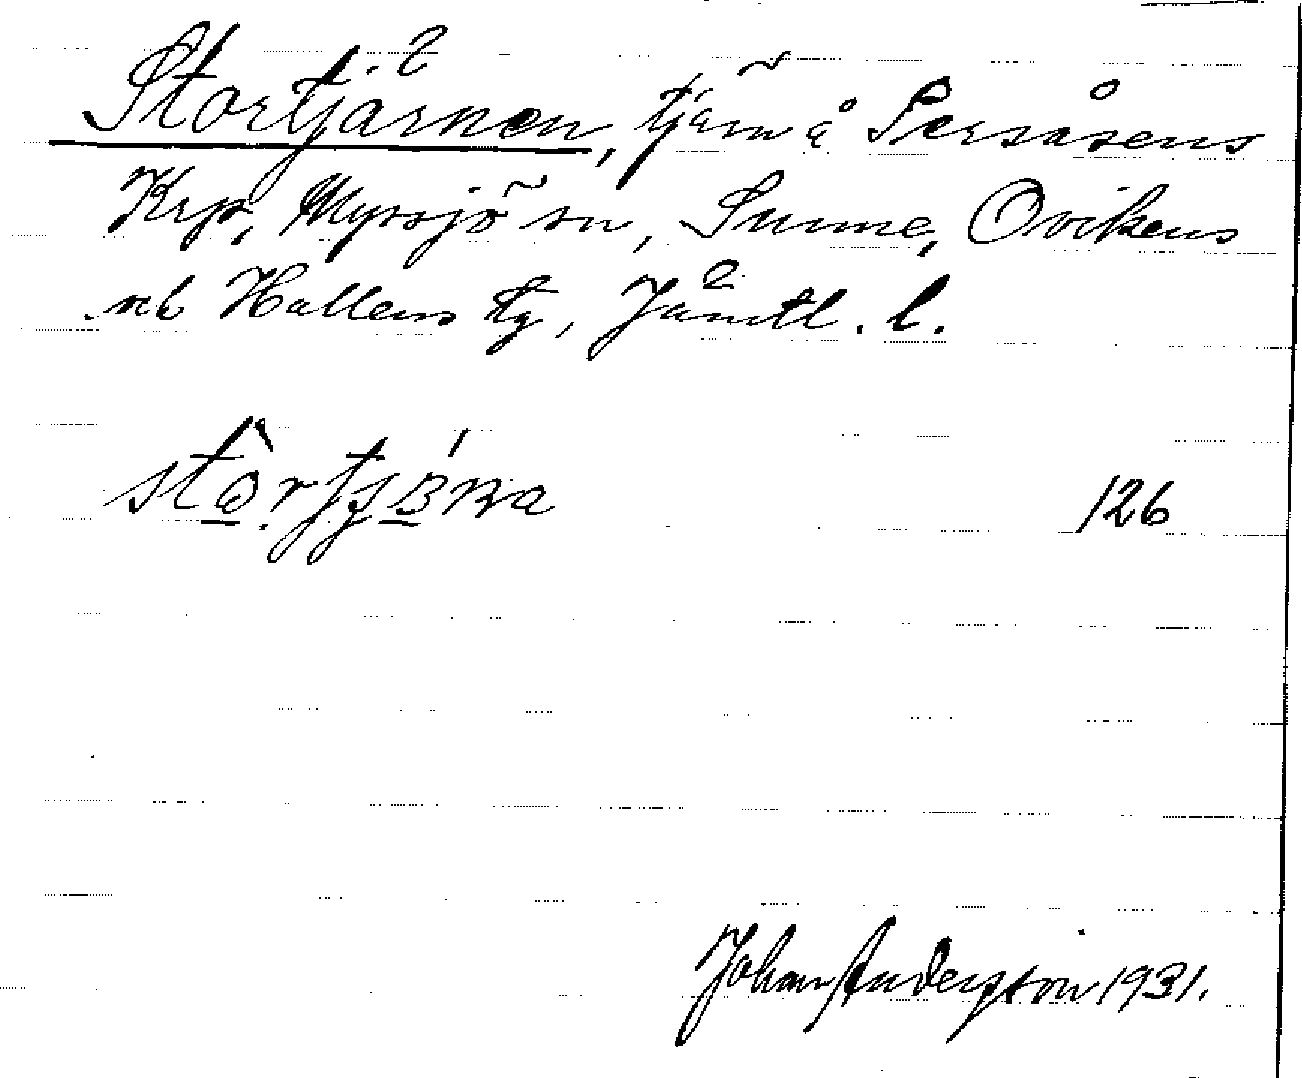 Stortjärnen, tjärn å Persåsens
Krp, Myssjö sn, Sunne, Ovikens
och Hallens tg, Jämtl. l.
126
Johan Anderzson 1931.